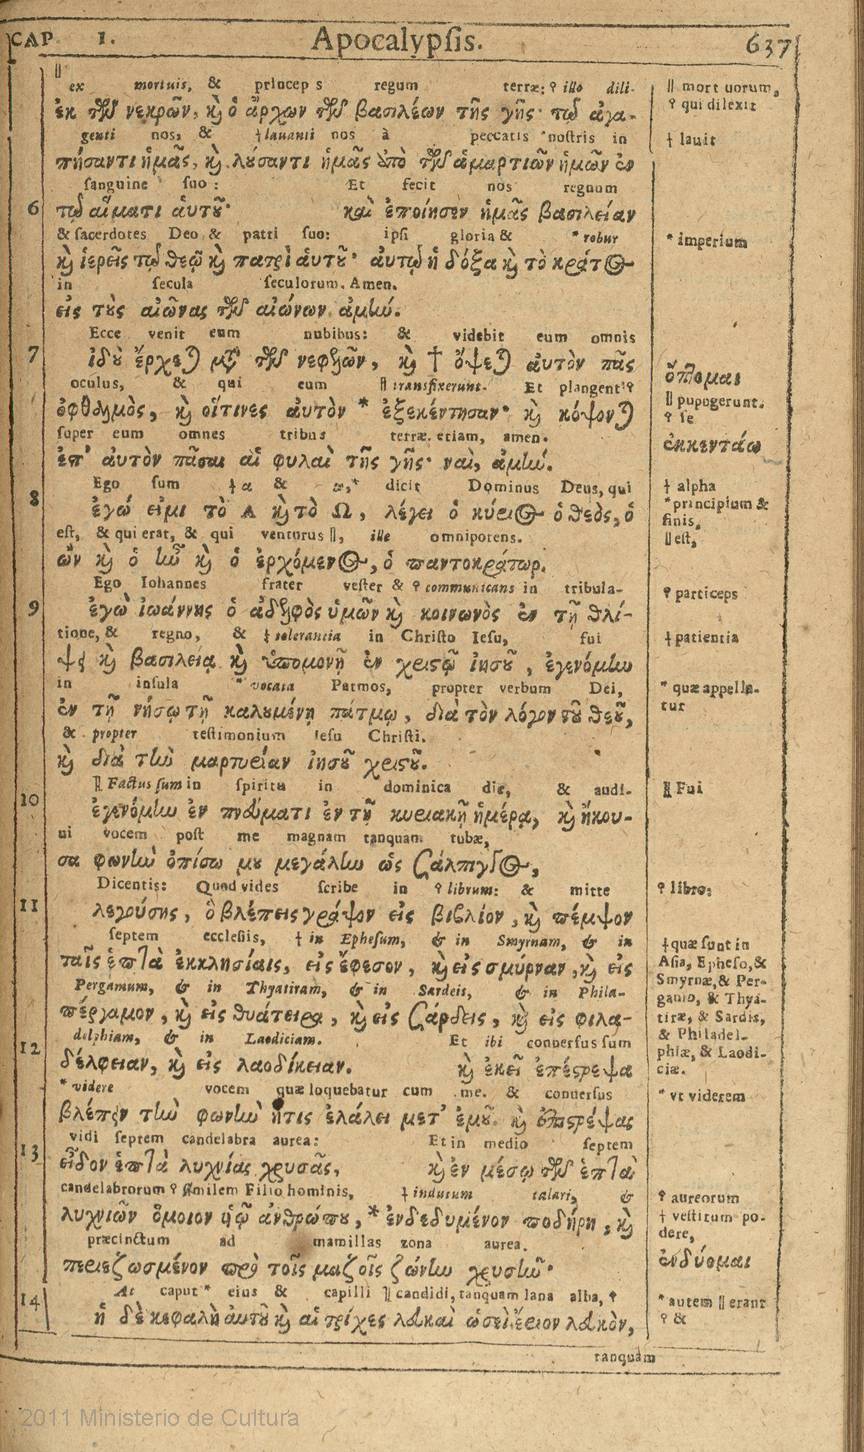 CAP. I. Apocalypsis. 637
ex mortuis, & princeps regum terræ: ⸮ illo dili- || mortuorum,
ἐκ τῶν νεκρῶν, καὶ ὁ ἄρχων τῶν βασιλέων τῆς γῆς· τῷ ἀγα- ⸮ qui dilexit
genti nos, & †lavanti nos à peccatis nostris in † lauit
πήσαντι ἡμᾶς, καὶ λούσαντι ἡμᾶς ἀπὸ τῶν ἁμαρτιῶν ἡμῶν ἐν
sanguine suo: Et fecit nos regnum
6 τῷ αἵματι ἀυτοῦ· καὶ ἐποίησεν ἡμᾶς βασιλείαν
& sacerdotes Deo & patri suo: ipsi gloria & *robur * imperium
καὶ ἱερεῖς τῷ θεῷ καὶ πατρὶ ἀυτοῦ· ἀυτῷ ἡ δόξα καὶ τὸ κράτος
in secula seculorum. Amen.
εἰς τοὺς αἰῶνας τῶν αἰώνων. ἀμήν.
Ecce venit cum nubibus: & videbit eum omnis
7 ἰδοὺ ἔρχεται μετὰ τῶν νεφελῶν, καὶ † ὄψεται ἀυτὸν πᾶς ὄπτομαι
oculus, & qui eum || transfixerunt. Et plangent ⸮ || pupugerunt.
ὀφθαλμὸς, καὶ οἵτινες ἀυτὸν * ἐξεκέντησαν· καὶ κόψονται ⸮ se
super eum omnes tribus terræ. etiam, amen. ἐκκεντάω
ἐπ' ἀυτὸν πᾶσαι αἱ φυλαὶ τῆς γῆς· ναὶ, ἀμήν.
Ego sum †α & ω,* dicit Dominus Deus, qui † alpha
8 ἐγώ εἰμι τὸ Α καὶ τὸ Ω, λέγει ὁ κύριος ὁ θεὸς, ὁ * principium & finis,
est, & qui erat, & qui venturus ||, ille omnipotens. || est,
ὢν καὶ ὁ ἦν καὶ ὁ ἐρχόμενος, ὁ παντοκράτωρ.
Ego Iohannes frater vester & ⸮ communicans in tribula- ⸮ particeps
9 ἐγὼ ἰωάννης ὁ ἀδελφὸς ὑμῶν καὶ κοινωνὸς ἐν τῇ θλί-
tione, & regno, & † tolerantia in Christo Iesu, fui † patientia
ψει καὶ βασιλείᾳ καὶ ὑπομονῇ ἐν χριστῷ ἰησοῦ, ἐγενόμην
in insula * vocata Patmos, propter verbum Dei, * quæ appella-
ἐν τῇ νήσῳ τῇ καλουμένῃ πάτμῳ, διὰ τὸν λόγον τοῦ θεοῦ, tur
& propter testimonium Iesu Christi.
καὶ διὰ τὴν μαρτυρίαν ἰησοῦ χριστοῦ.
|| Factus sum in spiritu in dominica die, & audi- || Fui
10 ἐγενόμην ἐν πνεύματι ἐν τῇ κυριακῇ ἡμέρᾳ, καὶ ἤκου-
ui vocem post me magnam tanquam tubæ,
σα φωνὴν ὀπίσω μου μεγάλην ὡς σάλπιγγος,
Dicentis: Quod vides scribe in ⸮ librum: & mitte ⸮ libro:
11 λεγούσης, ὃ βλέπεις γράψον εἰς βιβλίον, καὶ πέμψον
septem ecclesiis, † in Ephesum, & in Smyrnam, & in † quæ sunt in
ταῖς ἑπτὰ ἐκκλησίαις, εἰς ἔφεσον, καὶ εἰς σμύρναν, καὶ εἰς Asia, Epheso, &
Pergamum, & in Thyatiram, & in Sardeis, & in Phila- Smyrnæ, & Per-
πέργαμον, καὶ εἰς θυάτειρα, καὶ εἰς σάρδεις, καὶ εἰς φιλα- gamo, & Thya-
tiræ, & Sardis,
delphiam, & in Laodiciam. Et ibi conversus sum & Philadel-
12 δέλφειαν, καὶ εἰς λαοδίκειαν. καὶ ἐκεῖ ἐπέστρεψα phiæ, & Laodi-
ciæ.
* videre vocem quæ loquebatur cum me. & conuersus * vt viderem
βλέπειν τὴν φωνὴν ἥτις ἐλάλει μετ' ἐμοῦ. καὶ ἐπιστρέψας
vidi septem candelabra aurea: Et in medio septem
13 εἶδον ἑπτὰ λυχνίας χρυσᾶς, καὶ ἐν μέσῳ τῶν ἑπτὰ
candelabrorum ⸮ similem Filio hominis, † indutum talari, & ⸮ aureorum
λυχνιῶν ὅμοιον υἱῷ ἀνθρώπου, * ἐνδεδυμένον ποδήρη, καὶ † vestitum po-
dere,
præcinctum ad mamillas zona aurea.
περιεζωσμένον πρὸς τοῖς μαζοῖς ζώνην χρυσῆν· ἐνδύομαι
At caput * eius & capilli || candidi, tanquam lana alba, ⸮ * autem || erant
14 ἡ δὲ κεφαλὴ ἀυτοῦ καὶ αἱ τρίχες λευκαὶ ὡσεὶ ἔριον λευκὸν, ⸮ &
tanquam
2011 Ministerio de Cultura